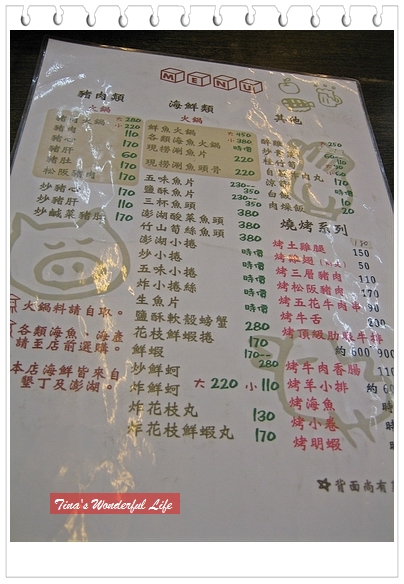 MENU
豬肉類
火鍋
豬肉火鍋 大280 小220
豬肉 110
豬心 170
豬肝 60
豬肚 170
松阪豬肉 170
炒豬心 170
炒豬肝 110
炒鹹菜豬肚 170
火鍋料請自取。
各類海魚、海產
請至店前選購。
本店海鮮皆來自
墾丁及澎湖。
海鮮類
火鍋
鮮魚火鍋 大450
各類海魚火鍋 時價
現撈涮魚片 220
現撈涮魚頭骨 220
五味魚片 230--
鹽酥魚片 230--
三杯魚頭 380
澎湖酸菜魚頭 380
竹山筍絲魚頭 380
澎湖小捲 時價
炒小捲 時價
五味小捲 時價
炸小捲絲 時價
生魚片 時價
鹽酥軟殼螃蟹 280
花枝鮮蝦捲 170
鮮蝦 170--
炒鮮蚵 280
炸鮮蚵 大220 小110
炸花枝丸 130
炸花枝鮮蝦丸 170
其他
250
白飯
燒烤系列
烤土雞腿 150
烤雞翅 50
烤三層豬肉 110
烤松阪豬肉 170
烤五花牛肉串 90
烤牛舌 200
烤頂級肋眼牛排
約600 900
烤牛肉香腸 110
烤羊小排 約60
烤海魚 時
烤小卷 時
烤明蝦 時
背面尚有
Tina's Wonderful Life